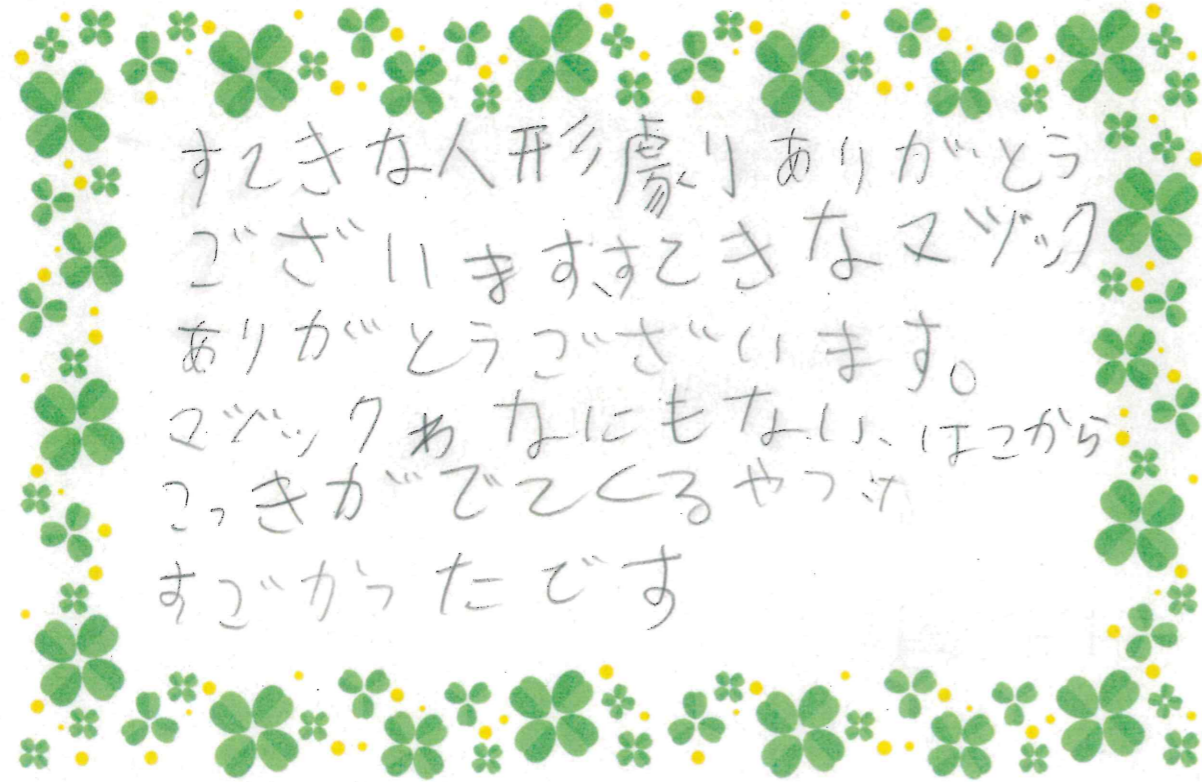 すてきな人形劇ありがとう
ございます、すてきなマヅック
ありがとうございます。
マヅックわなにもない、はこから
こっきがでてくるやつが
すごかったです